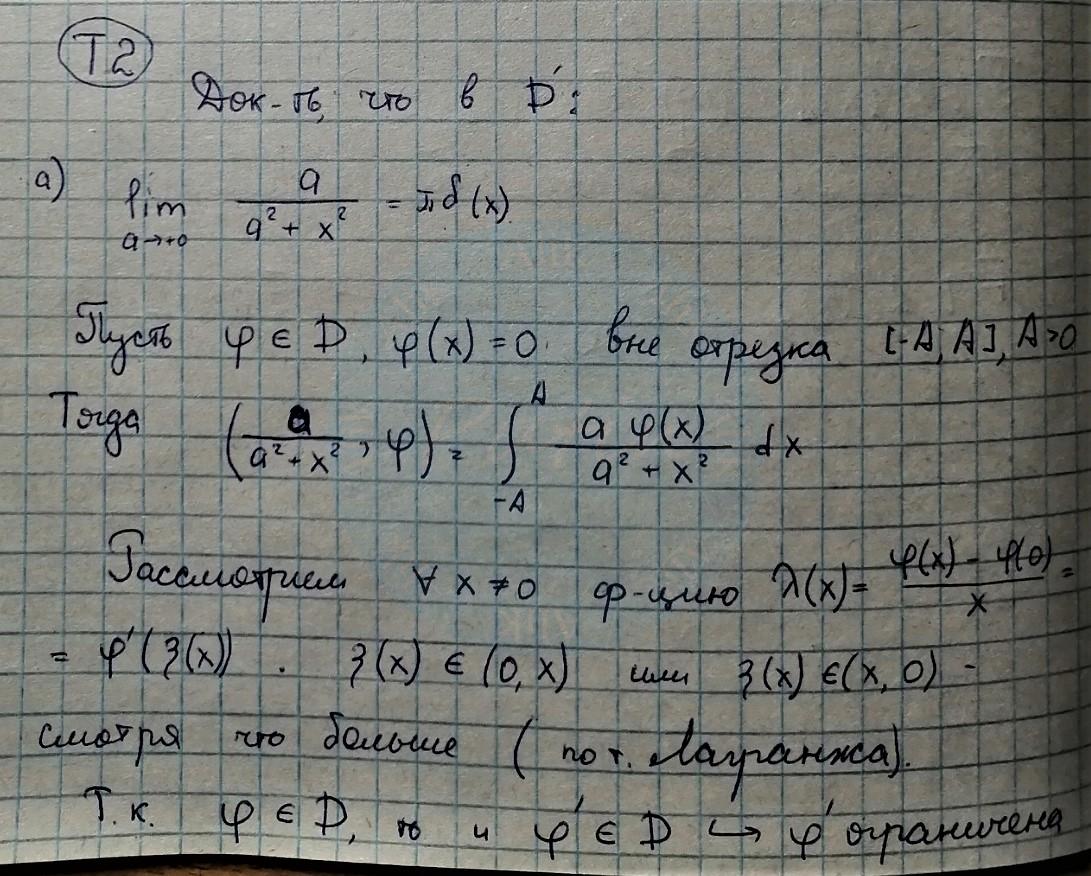 Т2
Док-ть, что в D':
а) lim a→+0 a/(a² + x²) = πδ(x)
Пусть φ ∈ D, φ(x) = 0 вне отрезка [-A, A], A>0
Тогда (a/(a²+x²), φ) = ∫_{-A}^{A} a φ(x)/(a² + x²) dx
Рассмотрим ∀ x ≠ 0 ф-цию λ(x) = (φ(x) – φ(0))/x =
= φ'(ξ(x)) . ξ(x) ∈ (0, x) или ξ(x) ∈ (x, 0) -
смотря что больше (по т. Лагранжа).
Т.к. φ ∈ D, то и φ' ∈ D ↪ φ' ограничена